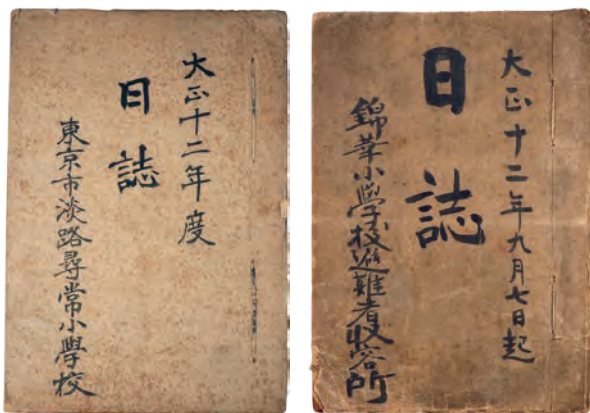 大正十二年度
日誌
東京市淡路尋常小學校
大正十二年九月七日起
日誌
錦華小學校避難者收容所